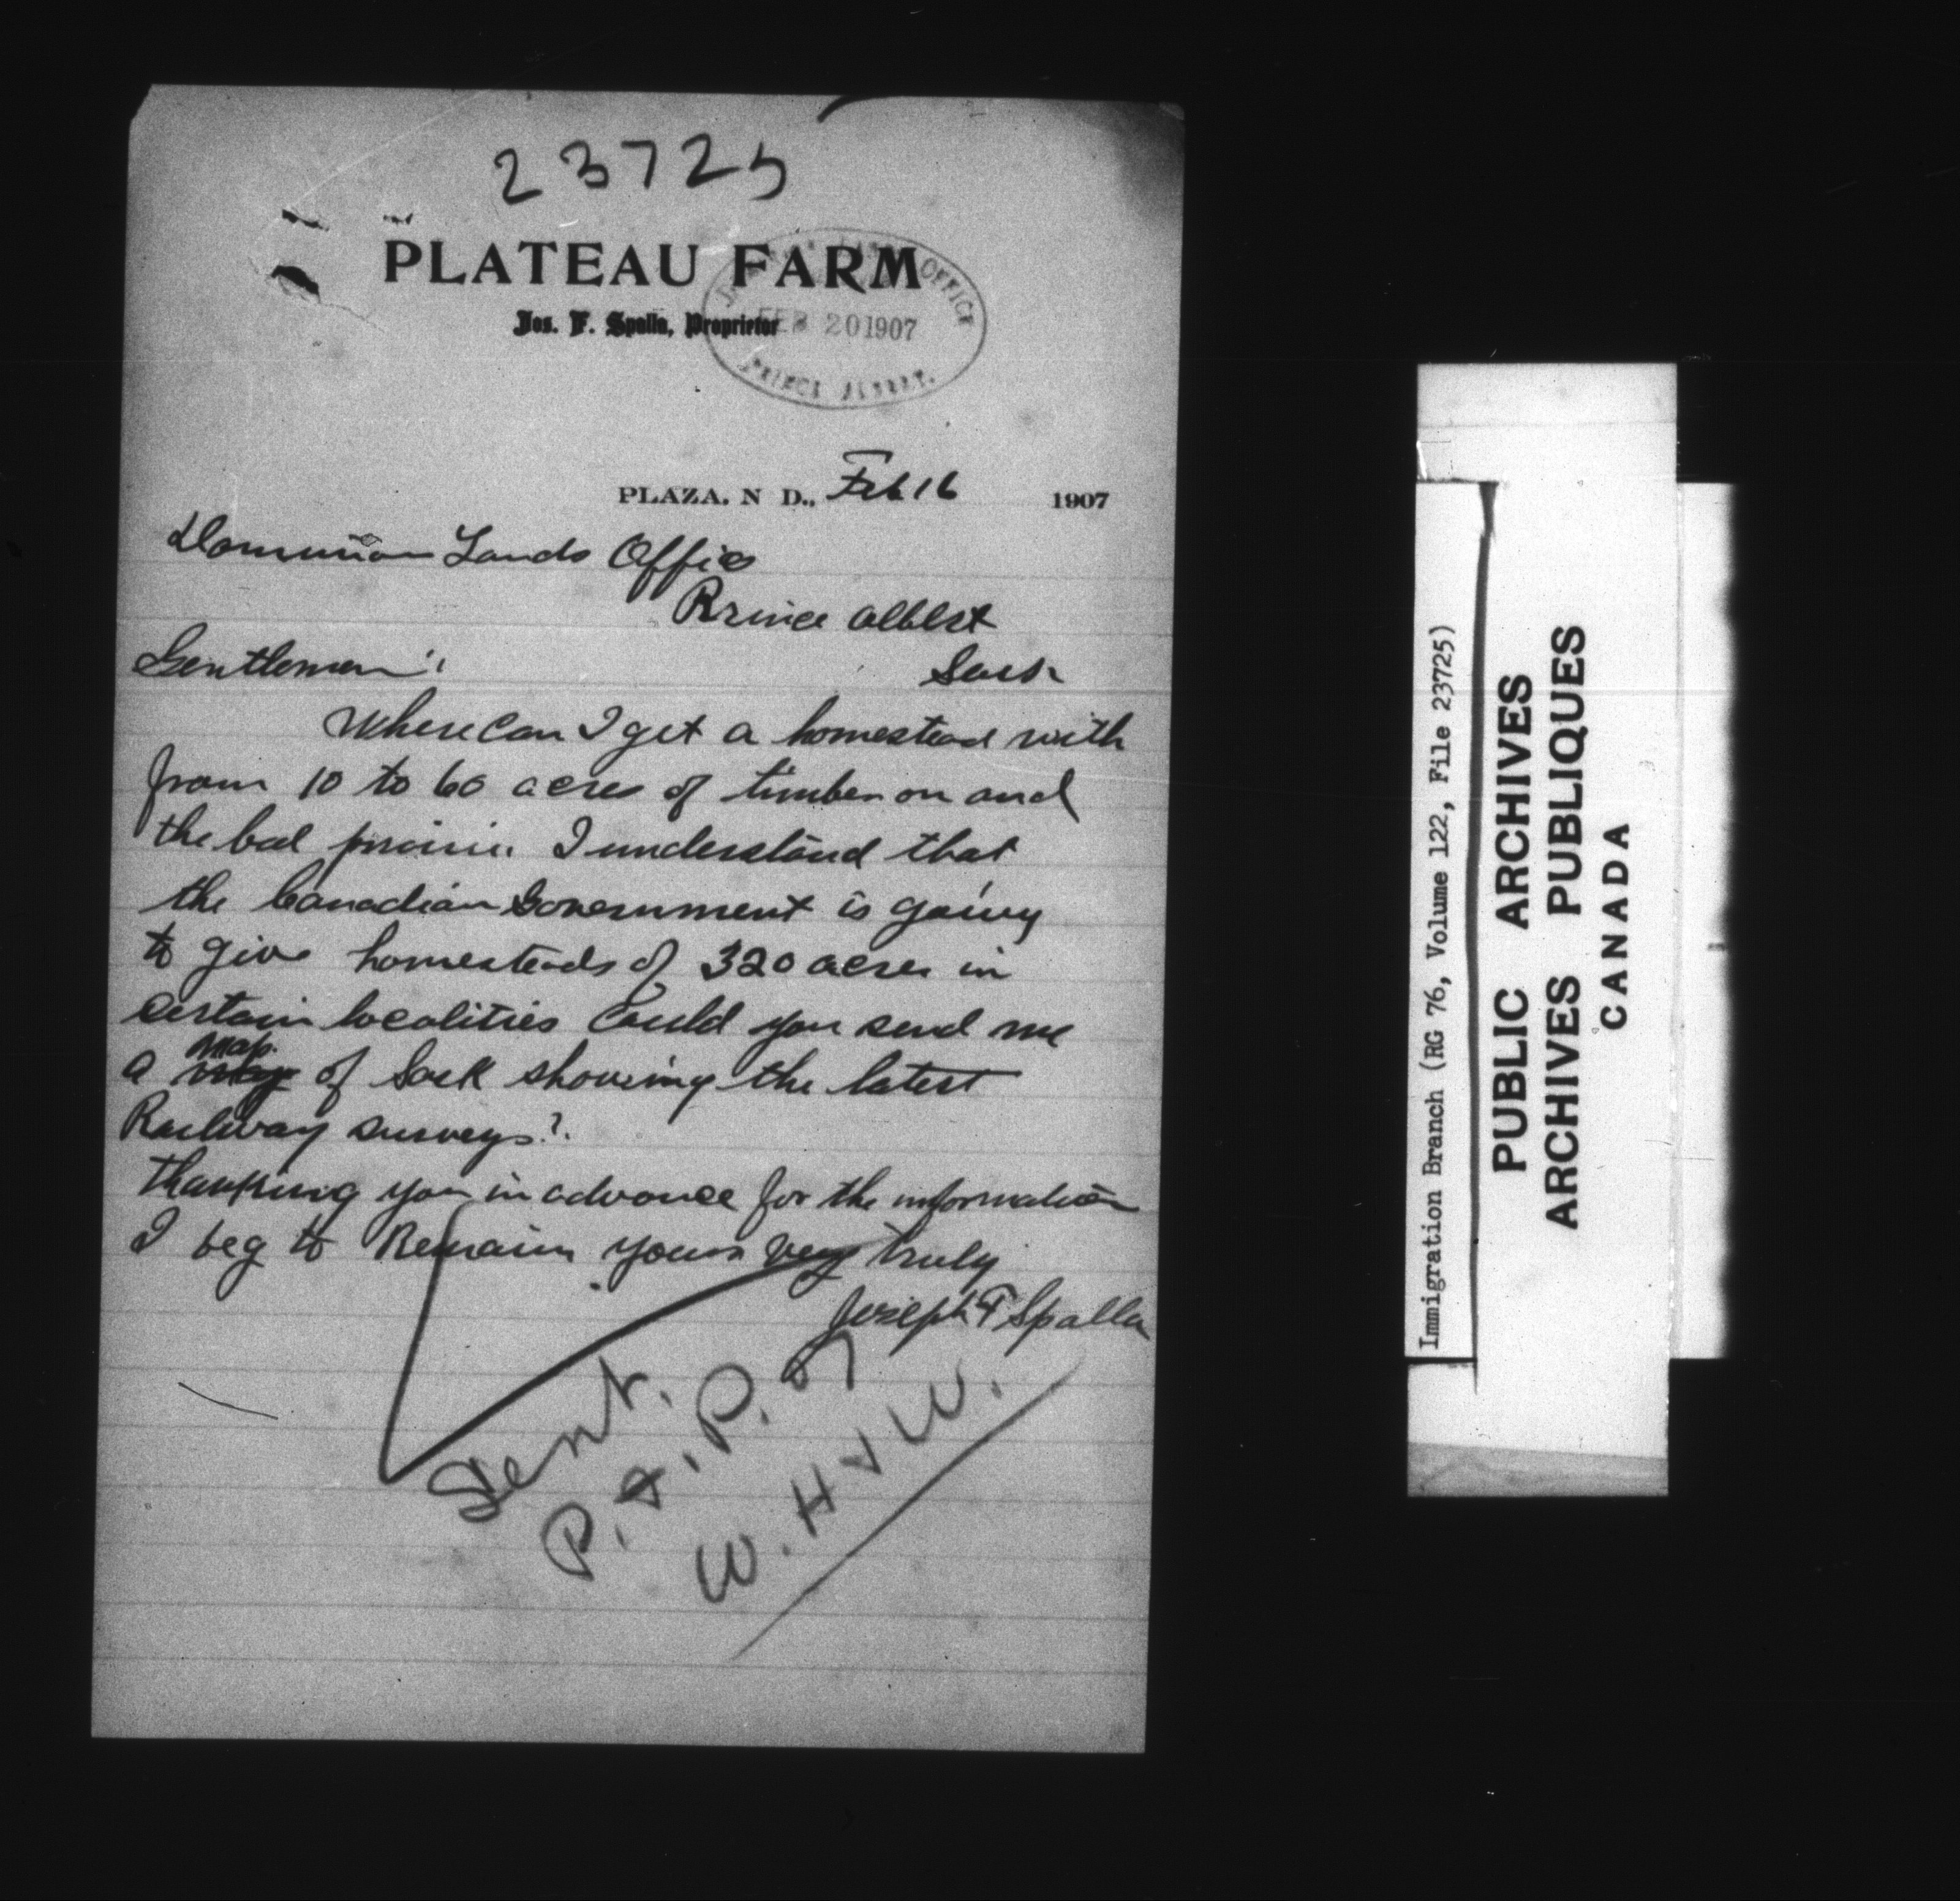 23725
PLATEAU FARM
Jos. F. Spalla, Proprietor
OFFICE
FEB 20 1907
PRINCE ALBERT.
PLAZA, N D., Feb 16 1907
Dominion Lands Office
Prince Albert
Gentlemen: Sask
Where Can I get a homestead with
from 10 to 60 acres of timber on and
the bal prairie. I understand that
the Canadian Government is going
to give homesteads of 320 acres in
certain localities Could you send me
map
a of Sask showing the latest
Railway surveys?
Thanking you in advance for the information
I beg to Remain yours very truly
Joseph F Spalla
Sent.
W. H
Immigration Branch (RG 76, Volume 122, File 23725)
PUBLIC ARCHIVES
ARCHIVES PUBLIQUES
CANADA